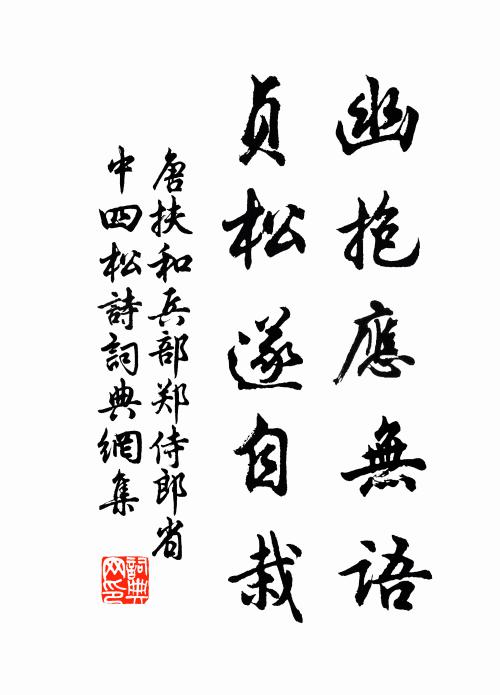 幽抱應無語
貞松遂自栽
唐扶和兵部郑侍郎省
中四松詩詞典網集
詞典网印